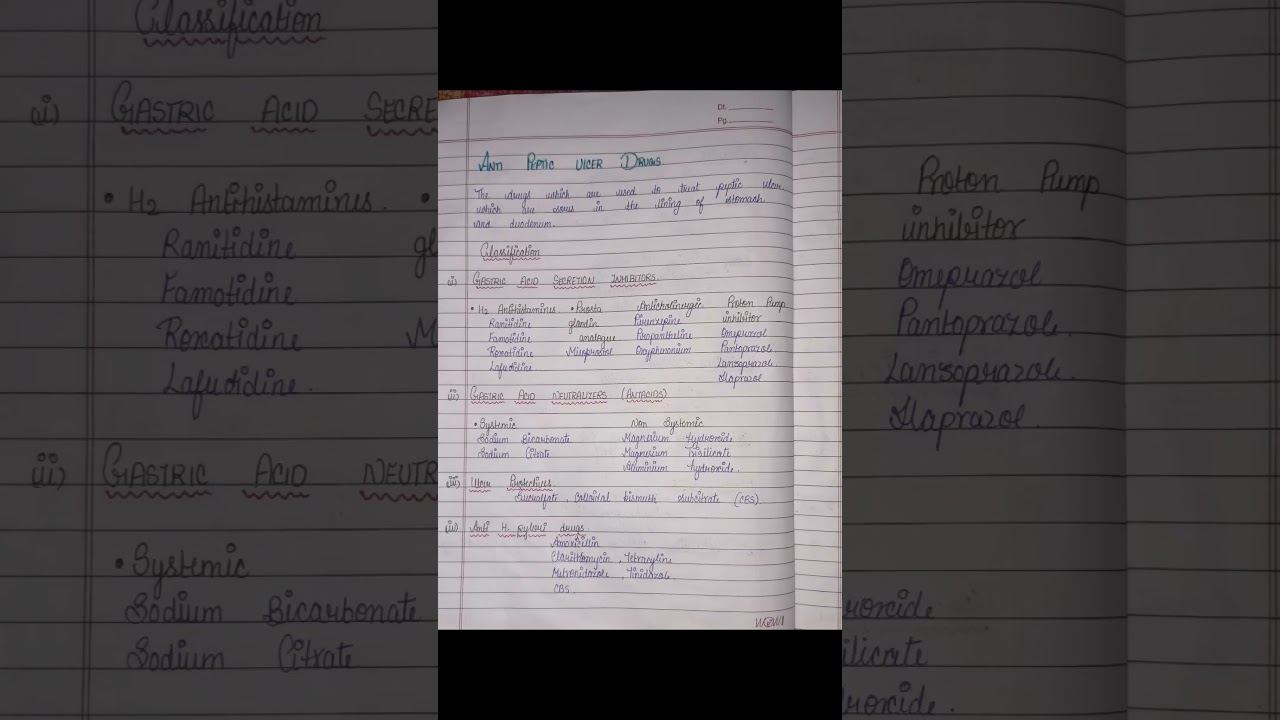 Dt.
Pg.
Anti Peptic ulcer Drugs
The drugs which are used to treat peptic ulcer
which are sores in the lining of stomach
and duodenum.
Classification
i) GASTRIC ACID SECRETION INHIBITORS.
• H2 Antihistamines • Prosta Anticholinergic Proton Pump
Ranitidine glandin Pirenzepine inhibitor
Famotidine analogue Propantheline Omeprazol
Roxatidine Oxyphenonium Pantoprazole
Lafutidine Lansoprazole
Ilaprazol
ii) GASTRIC ACID NEUTRALIZERS (ANTACIDS)
• Systemic Non Systemic
Sodium Bicarbonate Magnesium Hydroxide
Sodium Citrate Magnesium Trisilicate
Aluminium hydroxide.
iii) Ulcer Protectives
Sucralfate, Colloidal bismuth subcitrate (CBS)
iv) Anti H. pylori drugs.
Amoxicillin
Clarithomycin, Tetracyline
Metronidazole, Tinidazole
CBS.
Classification
i) GASTRIC ACID SECRE
• H2 Antihistamines. •
Ranitidine gl
Famotidine
Roxatidine M
Lafutidine.
ii) GASTRIC ACID NEUTR
• Systemic
Sodium Bicarbonate
Sodium Citrate
Proton Pump
inhibitor
Omeprazol
Pantoprazole
Lansoprazole.
Ilaprazol
roxide
ilicate
roxide.